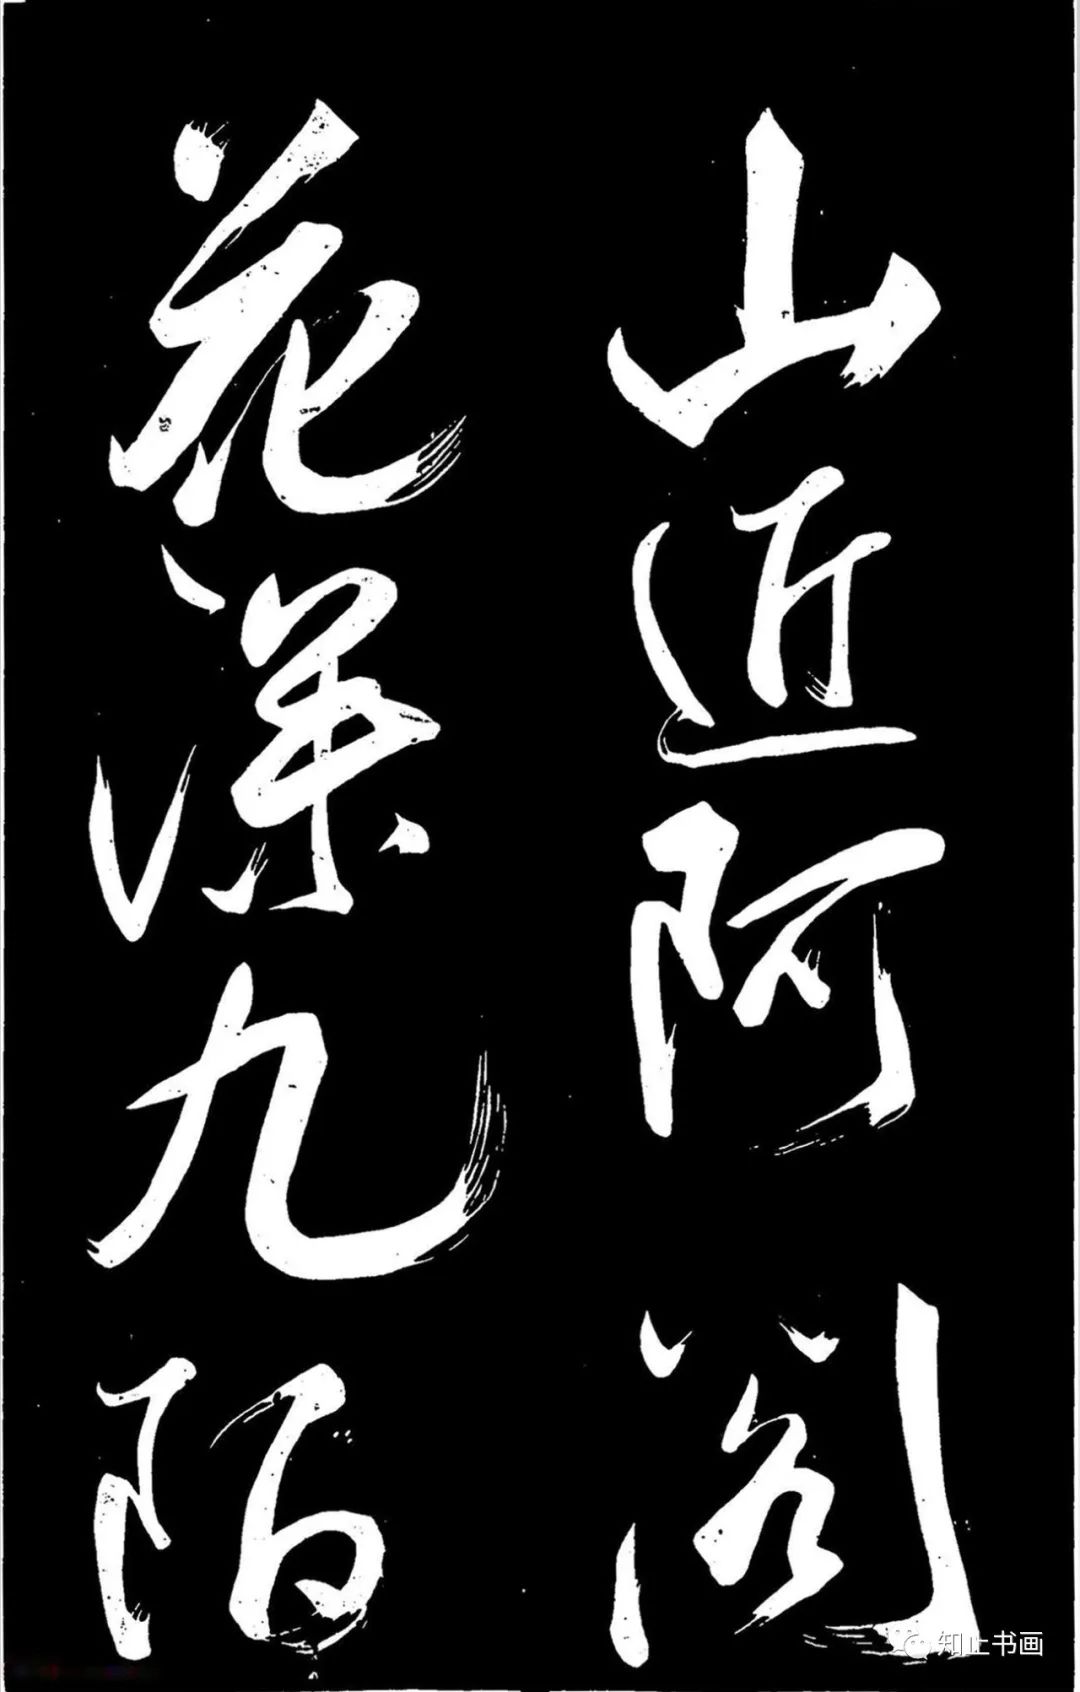 山近阿阁
花深九陌
知止书画